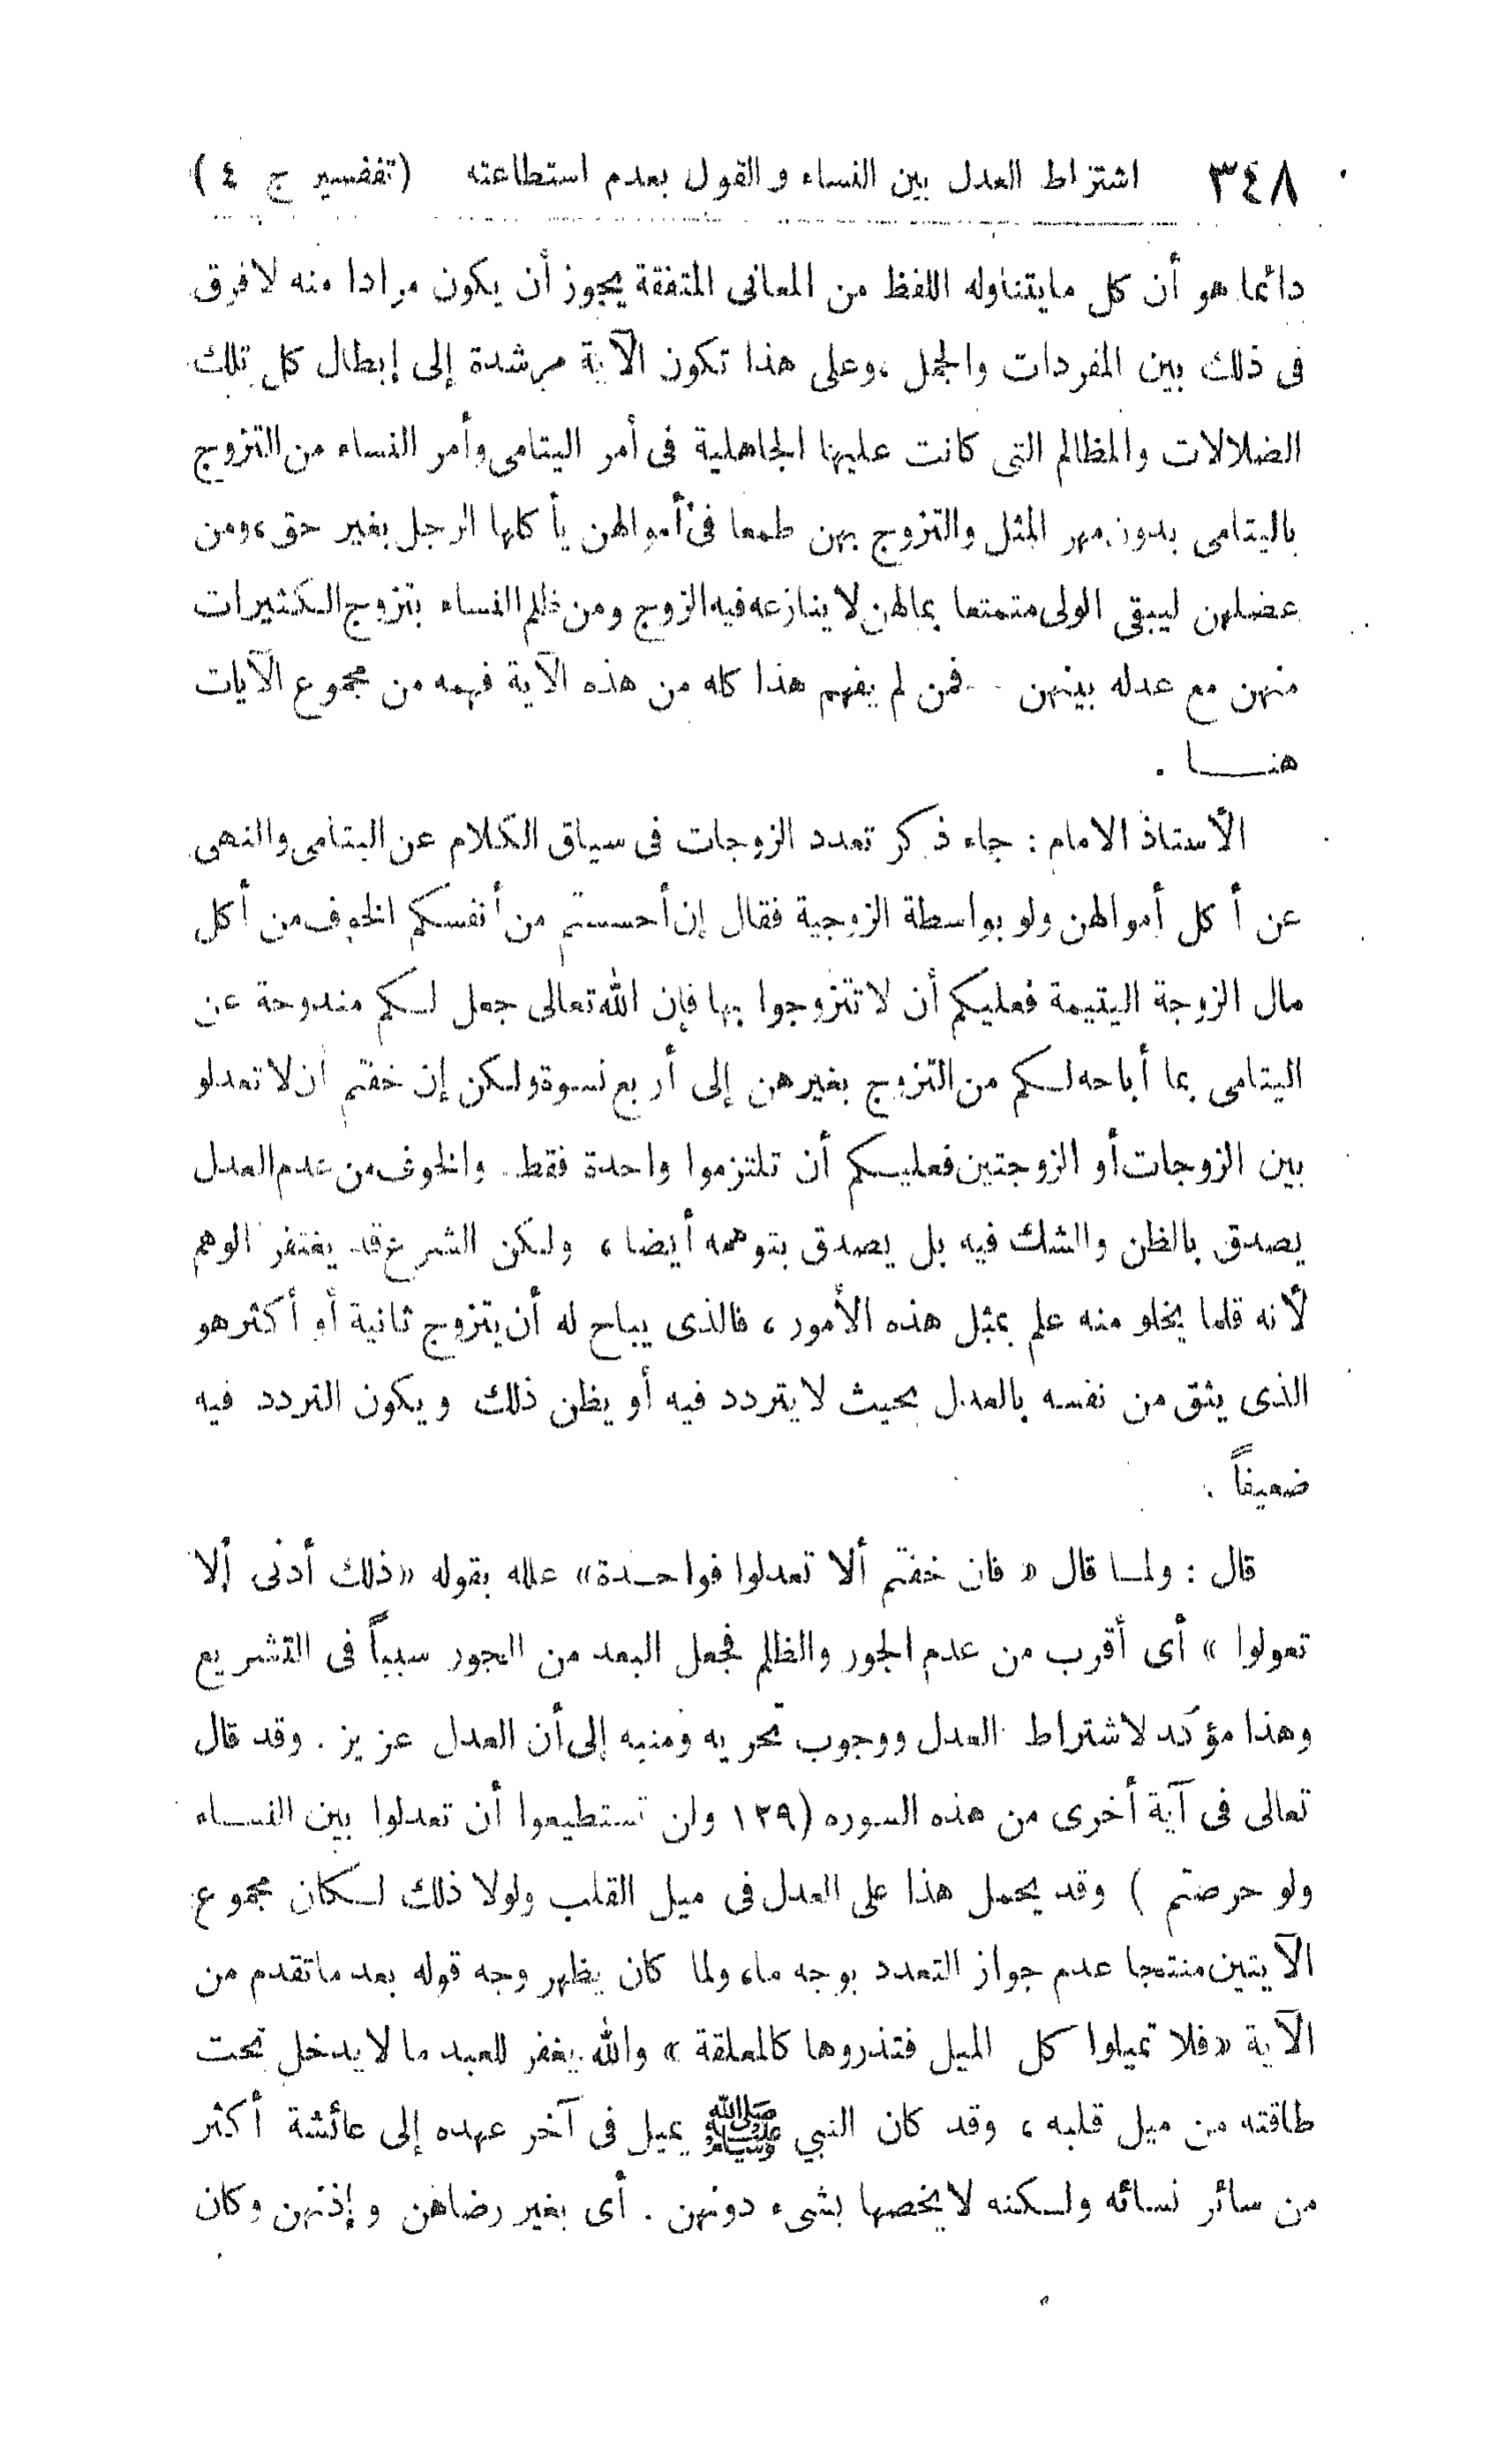 ٣٤٨ اشتراط العدل بين النساء والقول بعدم استطاعته (تفسير ج ٤)
دائما هو أن كل مايتناوله اللفظ من المعانى المتفقة يجوز أن يكون مرادا منه لا فرق
فى ذلك بين المفردات والجمل ،وعلى هذا تكون الآية مرشدة إلى إبطال كل تلك
الضلالات والمظالم التى كانت عليها الجاهلية فى أمر اليتامى وأمر النساء من التزوج
باليتامى بدون مهر المثل والتزوج بهن طمعا فى أموالهن يأكلها الرجل بغير حق ،ومن
عضلهن ليبقى الولى متمتعا بمالهن لا ينازعه فيه الزوج ومن ظلم النساء بتزوج الكثيرات
منهن مع عدله بينهن - فمن لم يفهم هذا كله من هذه الآية فهمه من مجموع الآيات
هنــــا .
الأستاذ الامام : جاء ذكر تعدد الزوجات فى سياق الكلام عن اليتامى والنهى
عن أكل أموالهن ولو بواسطة الزوجية فقال إن أحسستم من أنفسكم الخوف من أكل
مال الزوجة اليتيمة فعليكم أن لا تتزوجوا بها فإن الله تعالى جعل لكم مندوحة عن
اليتامى بما أباحه لكم من التزوج بغيرهن إلى أربع نسوة ولكن إن خفتم أن لا تعدلو
بين الزوجات أو الزوجتين فعليكم أن تلتزموا واحدة فقط. والخوف من عدم العدل
يصدق بالظن والشك فيه بل يصدق بتوهمه أيضا ، ولكن الشرع قد يغتفر الوهم
لأنه قلما يخلو منه علم بمثل هذه الأمور ، فالذى يباح له أن يتزوج ثانية أو أكثر هو
الذى يثق من نفسه بالعدل بحيث لا يتردد فيه أو يظن ذلك ويكون التردد فيه
ضعيفاً .
قال : ولما قال « فان خفتم ألا تعدلوا فواحدة» علله بقوله «ذلك أدنى ألا
تعولوا » أى أقرب من عدم الجور والظلم فجعل البعد من الجور سبباً فى التشريع
وهذا مؤكد لاشتراط العدل ووجوب تحريه ومنبه إلى أن العدل عزيز . وقد قال
تعالى فى آية أخرى من هذه السوره (١٢٩ ولن تستطيعوا أن تعدلوا بين النساء
ولو حرصتم ) وقد يحمل هذا على العدل فى ميل القلب ولولا ذلك لكان مجموع
الآيتين منتجا عدم جواز التعدد بوجه ما، ولما كان يظهر وجه قوله بعد ماتقدم من
الآية «فلا تميلوا كل الميل فتذروها كالمعلقة » والله يغفر للعبد ما لا يدخل تحت
طاقته من ميل قلبه ، وقد كان النبي ﷺ يميل فى آخر عهده إلى عائشة أكثر
من سائر نسائه ولكنه لا يخصها بشىء دونهن . أى بغير رضاهن وإذنهن وكان